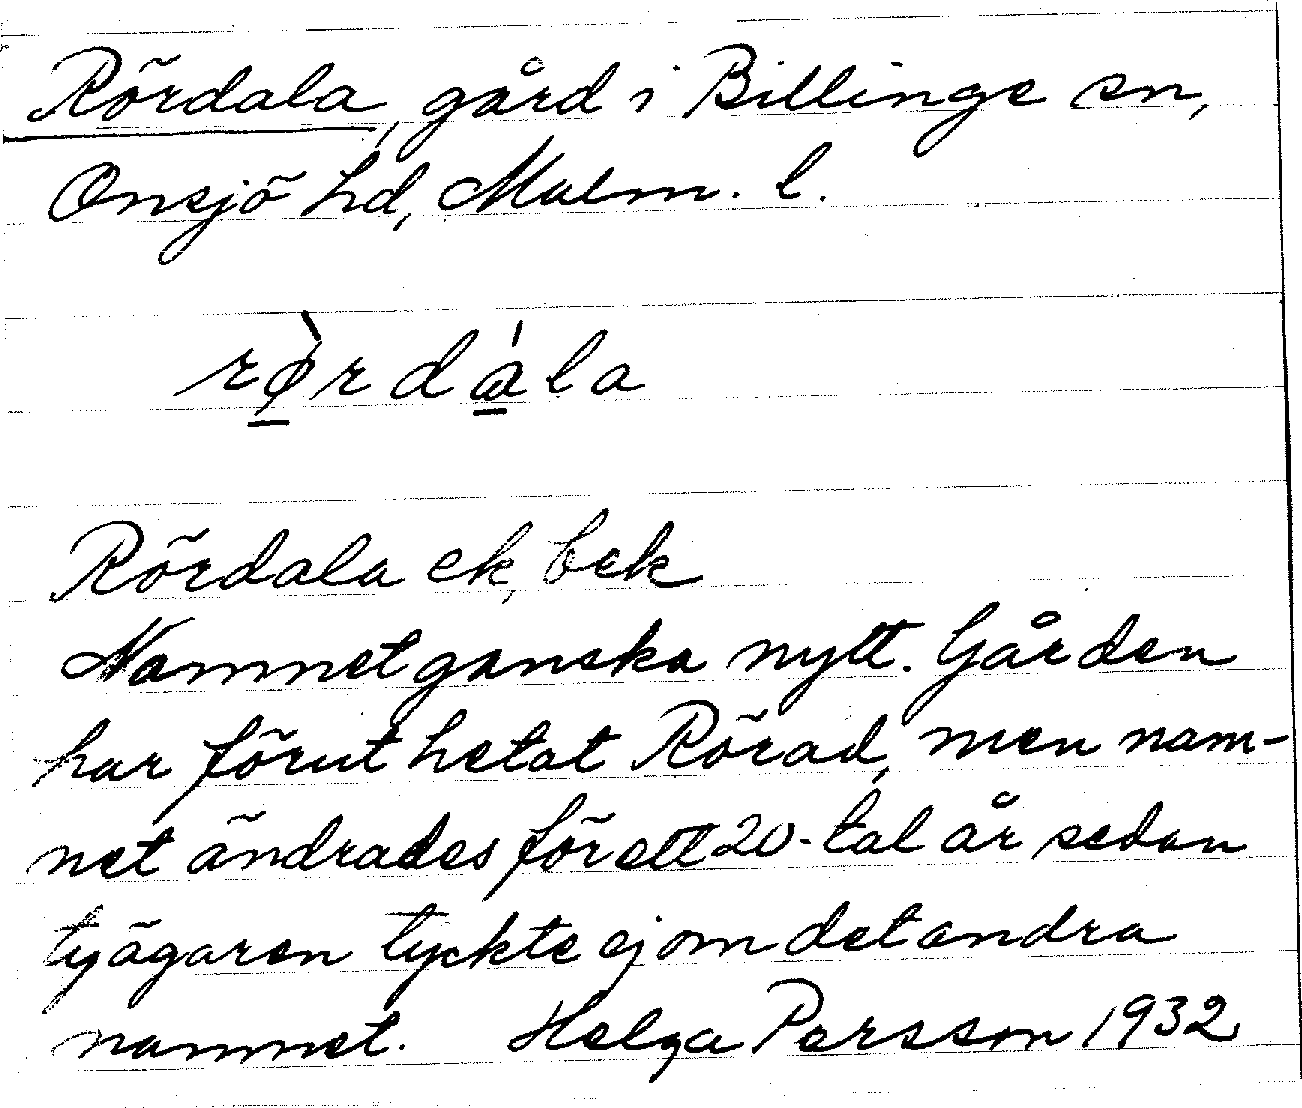 Rördala, gård i Billinge sn,
Onsjö hd, Malm. l.
rø̀rdála
Rördala ek, bek
Namnet ganska nytt. Gården
har förut hetat Rörad, men nam-
net ändrades för ett 20-tal år sedan
ty ägaren tyckte ej om det andra
namnet. Helga Persson 1932